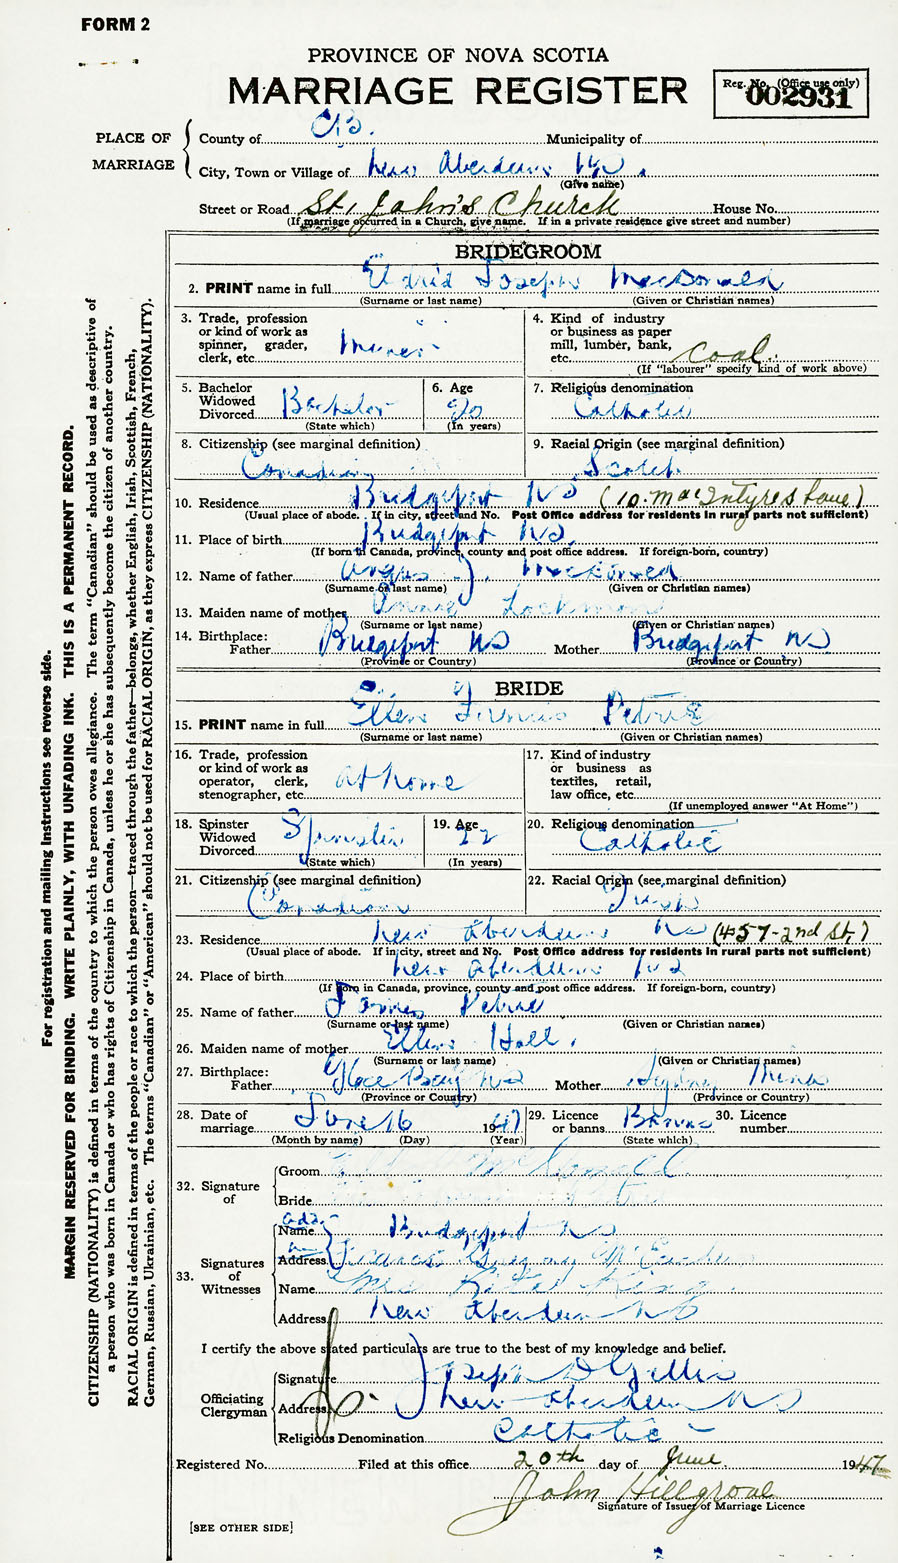 FORM 2
PROVINCE OF NOVA SCOTIA
MARRIAGE REGISTER
Reg. No. (Office use only)
002931
PLACE OF MARRIAGE
County of C.B. Municipality of
City, Town or Village of New Aberdeen N.S.
(Give name)
Street or Road St. John's Church House No.
(If marriage ocurred in a Church, give name. If in a private residence give street and number)
BRIDEGROOM
2. PRINT name in full Joseph MacDonald
(Surname or last name) (Given or Christian names)
3. Trade, profession or kind of work as spinner, grader, clerk, etc. Miner
4. Kind of industry or business as paper mill, lumber, bank, etc. Coal.
(If "labourer" specify kind of work above)
5. Bachelor Widowed Divorced Bachelor
(State which)
6. Age 20
(In years)
7. Religious denomination Catholic
8. Citizenship (see marginal definition) Canadian
9. Racial Origin (see marginal definition) Scotch
10. Residence Bridgeport NS (10. MacIntyres Lane)
(Usual place of abode. If in city, street and No. Post Office address for residents in rural parts not sufficient)
11. Place of birth Bridgeport NS
(If born in Canada, province, county and post office address. If foreign-born, country)
12. Name of father Angus J. MacDonald
(Surname or last name) (Given or Christian names)
13. Maiden name of mother Annie
(Surname or last name) (Given or Christian names)
14. Birthplace: Father Bridgeport NS Mother Bridgeport NS
(Province or Country) (Province or Country)
BRIDE
15. PRINT name in full Ellen Frances Petrie
(Surname or last name) (Given or Christian names)
16. Trade, profession or kind of work as operator, clerk, stenographer, etc. At home
17. Kind of industry or business as textiles, retail, law office, etc.
(If unemployed answer "At Home")
18. Spinster Widowed Divorced Spinster
(State which)
19. Age 22
(In years)
20. Religious denomination Catholic
21. Citizenship (see marginal definition) Canadian
22. Racial Origin (see marginal definition)
23. Residence New Aberdeen NS (457-2nd St.)
(Usual place of abode. If in city, street and No. Post Office address for residents in rural parts not sufficient)
24. Place of birth New Aberdeen NS
(If born in Canada, province, county and post office address. If foreign-born, country)
25. Name of father James Petrie
(Surname or last name) (Given or Christian names)
26. Maiden name of mother Ellen Hall.
(Surname or last name) (Given or Christian names)
27. Birthplace: Father Glace Bay NS Mother Sydney Mines
(Province or Country) (Province or Country)
28. Date of marriage June 16 1947
(Month by name) (Day) (Year)
29. Licence or banns Banns
(State which)
30. Licence number
32. Signature of
Groom
Bride
33. Signatures of Witnesses
Name Bridgeport NS
Address Francis Gregory
Name Rita King
Address New Aberdeen NS
I certify the above stated particulars are true to the best of my knowledge and belief.
Officiating Clergyman
Signature Joseph D Gillis
Address New Aberdeen NS
Religious Denomination Catholic
Registered No. Filed at this office 20th day of June 1947
John Hillgrove
Signature of Issuer of Marriage Licence
[SEE OTHER SIDE]
For registration and mailing instructions see reverse side.
MARGIN RESERVED FOR BINDING. WRITE PLAINLY, WITH UNFADING INK. THIS IS A PERMANENT RECORD.
CITIZENSHIP (NATIONALITY) is defined in terms of the country to which the person owes allegiance. The term "Canadian" should be used as descriptive of
a person who was born in Canada or who has rights of Citizenship in Canada, unless he or she has subsequently become the citizen of another country.
RACIAL ORIGIN is defined in terms of the people or race to which the person—traced through the father—belongs, whether English, Irish, Scottish, French,
German, Russian, Ukrainian, etc. The terms "Canadian" or "American" should not be used for RACIAL ORIGIN, as they express CITIZENSHIP (NATIONALITY).